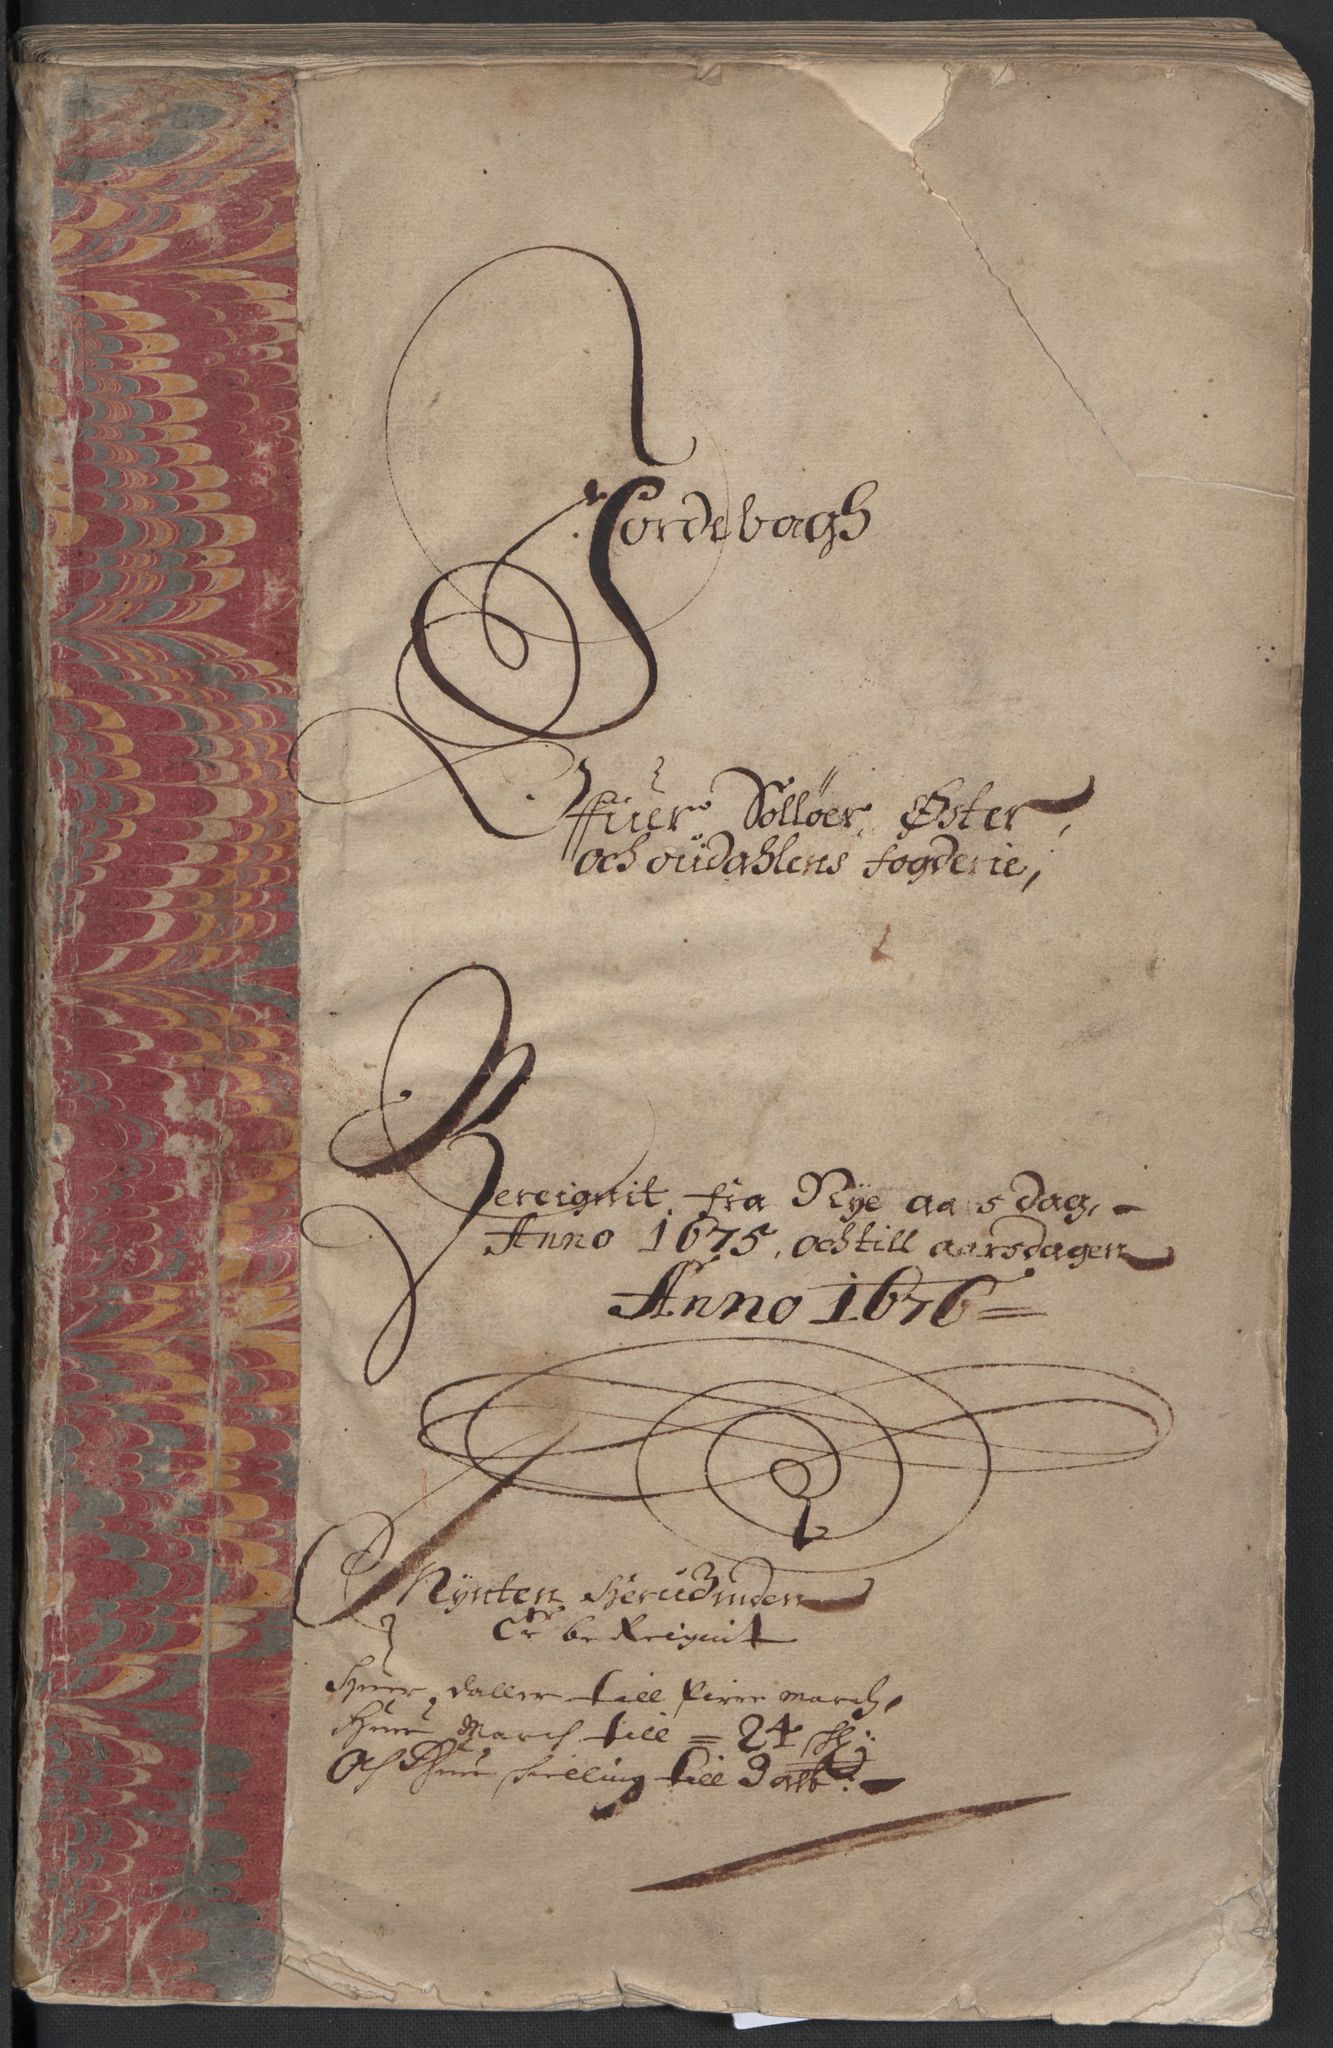 Jordebogh
Offuer Solløer, Øster,
och oudahlens fogderie,
Bereignit fra Nye aarsdag,
Anno 1675, och till aarsdagen
Anno 1676
Mynten herudinden
er be Reignit
Huer daller till fire march,
Huer March till = 24 sk:
Och Huer skelling till 3 alb: